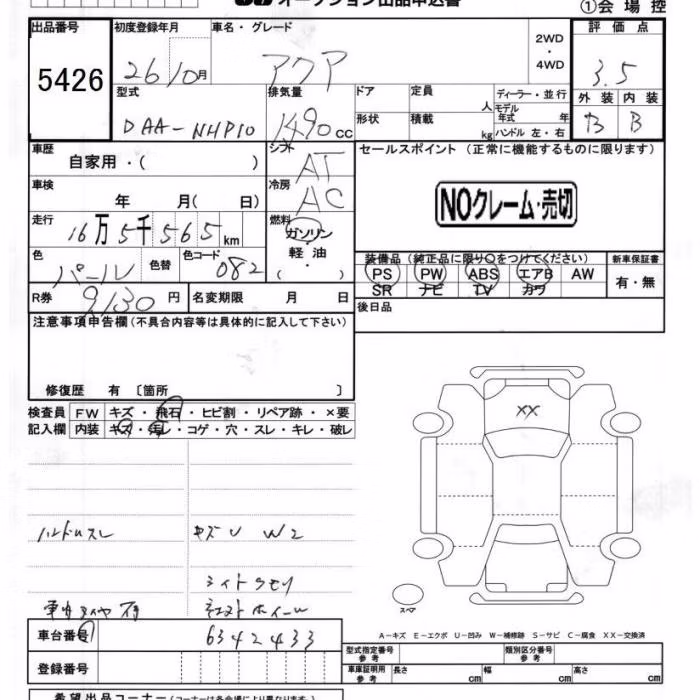 オークション出品申込書 ①会場控
出品番号 初度登録年月 車名・グレード 評価点
5426 26 10月 アクア 2WD・4WD 3.5
型式 排気量 ドア 定員 人 ディーラー・並行 外装 内装
DAA-NHP10 1490cc 形状 積載 kg モデル年式 年 ハンドル 左・右 B B
車歴 シフト セールスポイント (正常に機能するものに限ります)
自家用・( ) AT
車検 冷房 NOクレーム・売切
年 月( 日) AC
走行 燃料
16万5千565km ガソリン・軽油・( )
色 色替 色コード 装備品(純正品に限り○をつけてください) 新車保証書
パール 082 PS PW ABS エアB AW 有・無
SR ナビ TV カワ
R券 9130円 名変期限 月 日 後日品
注意事項申告欄(不具合内容等は具体的に記入して下さい)
修復歴 有 〔箇所 〕
検査員 FW キズ・飛石・ヒビ割・リペア跡・×要 XX
記入欄 内装 キズ・汚レ・コゲ・穴・スレ・キレ・破レ
ハンドルスレ キズ U W2
ライトクモリ
車内タイヤ有 ホイール
スペア
車台番号 6342433 A-キズ E-エクボ U-凹み W-補修跡 S-サビ C-腐食 XX-交換済
型式指定番号 参考 類別区分番号 参考
登録番号 車庫証明用 参考 長さ cm 幅 cm 高さ cm
希望出品コーナー(コーナーは各会場により異なります)